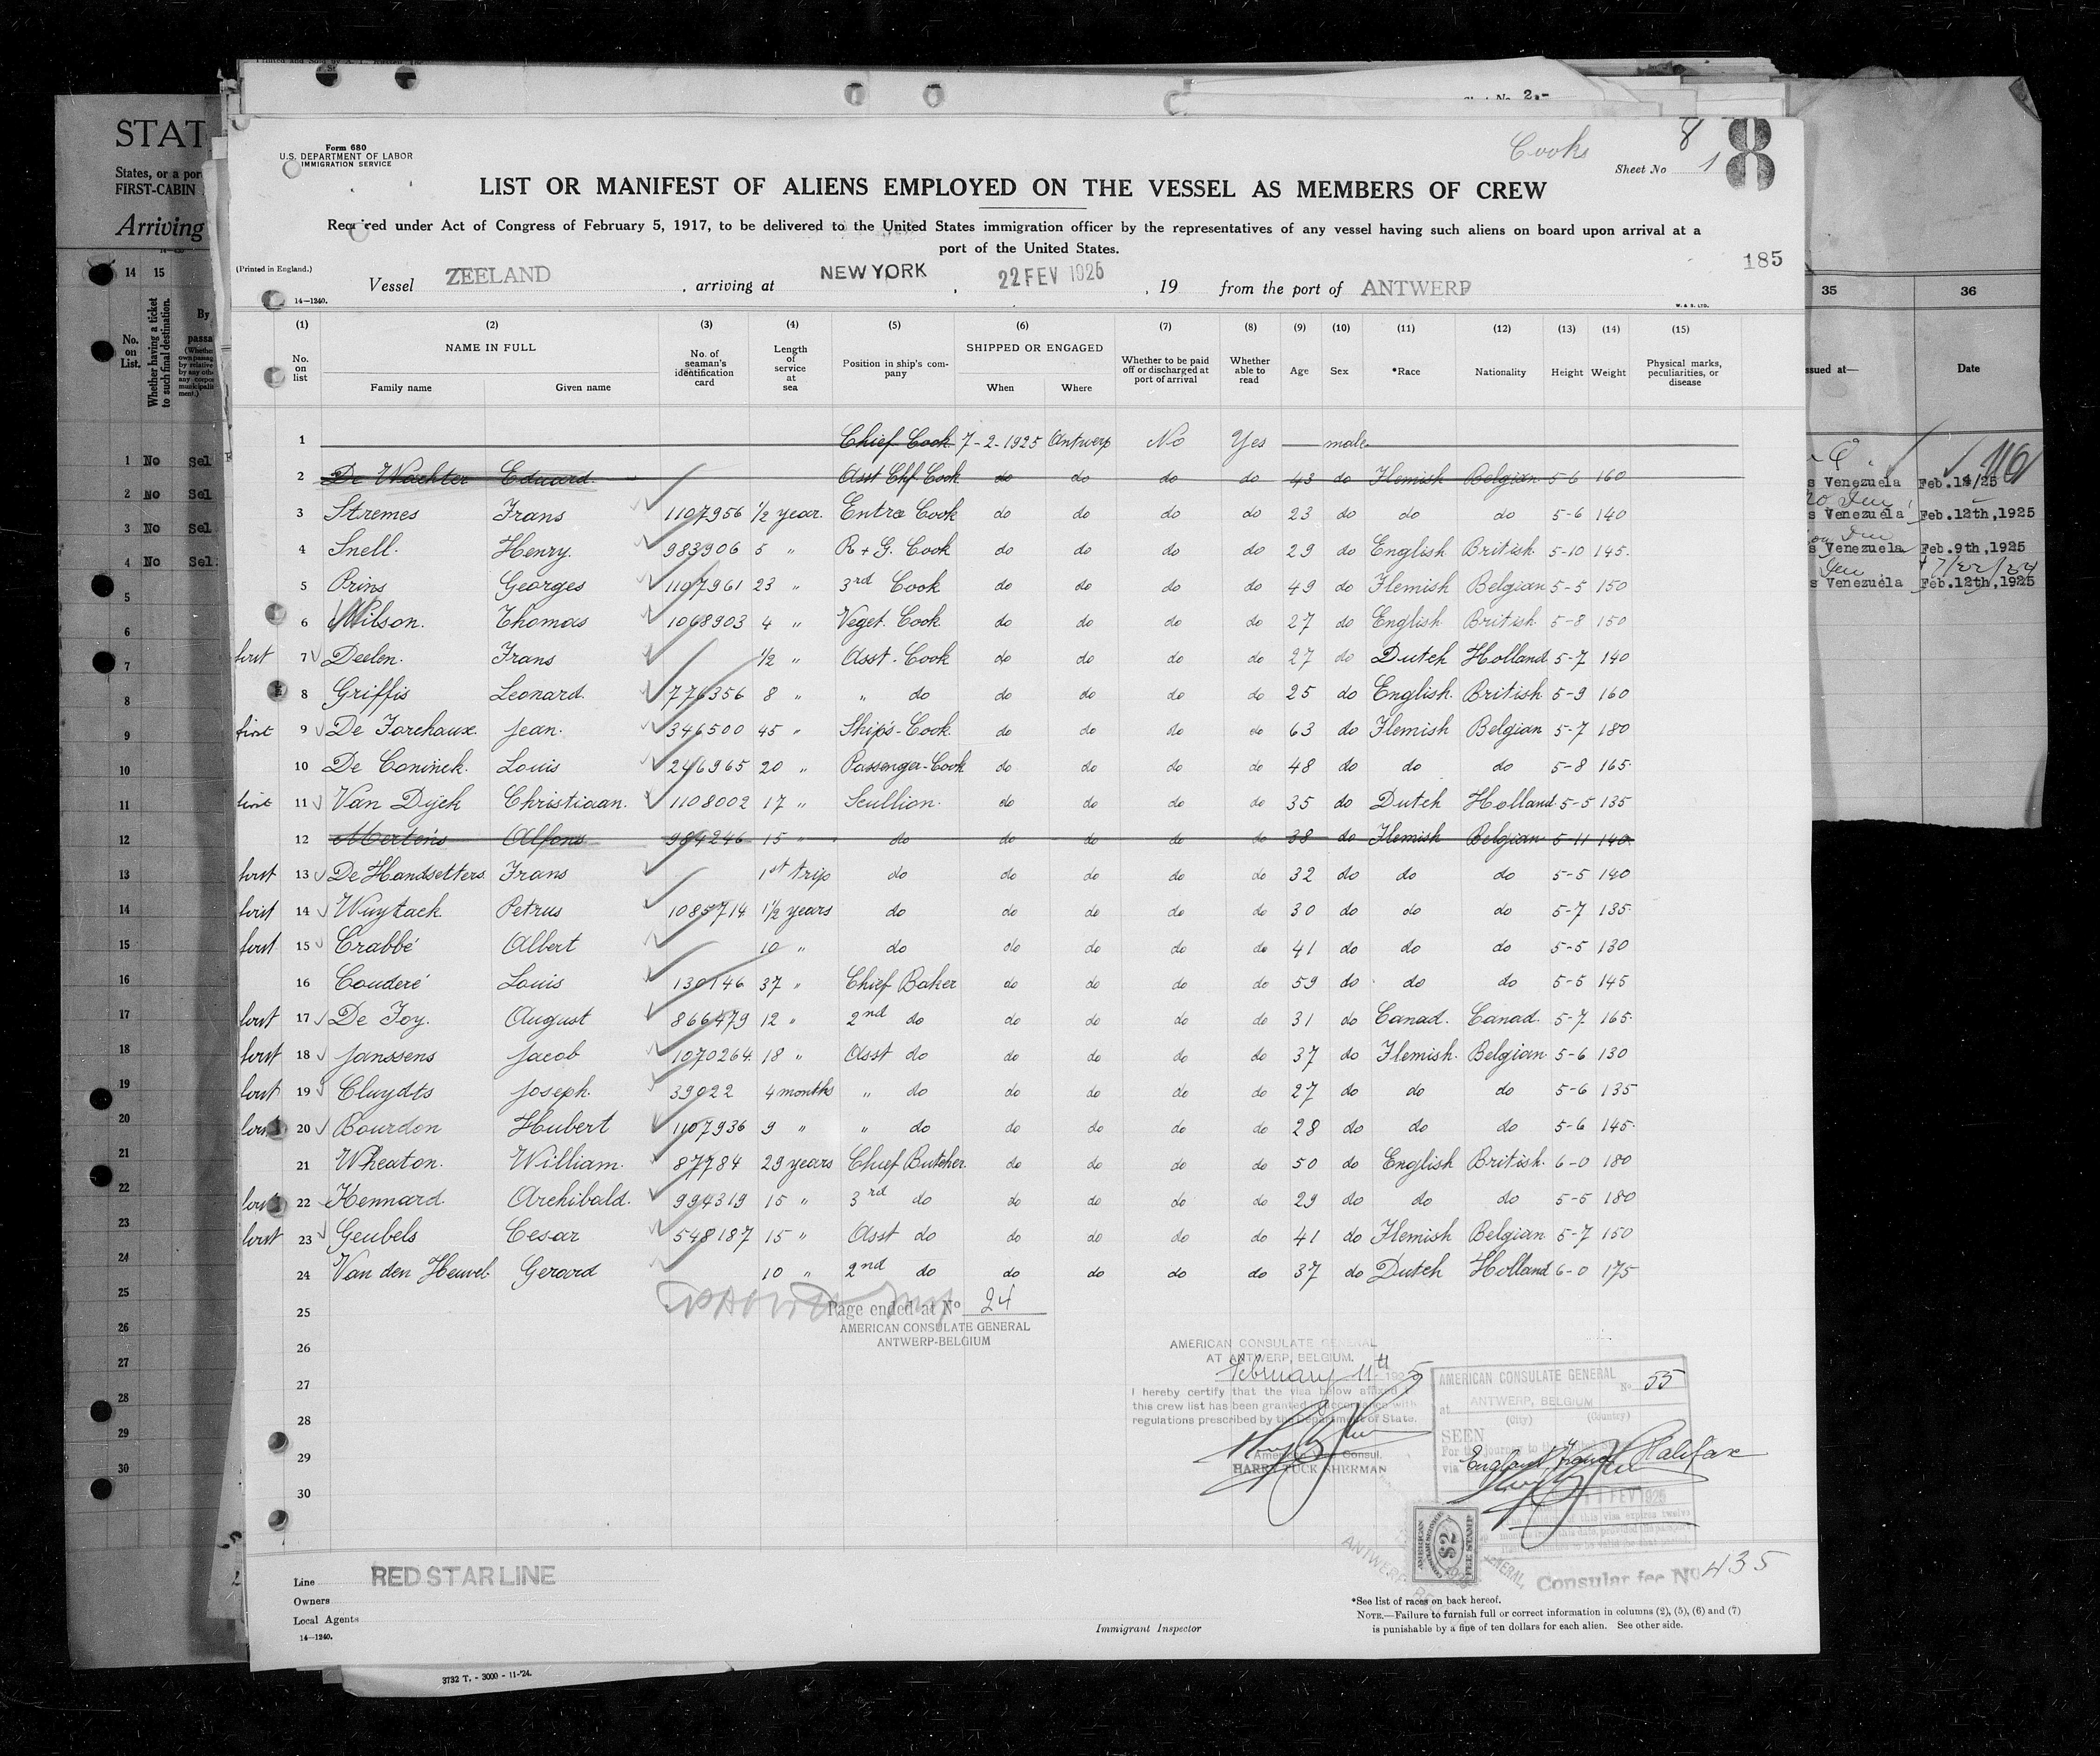 Form 680
U.S. DEPARTMENT OF LABOR
IMMIGRATION SERVICE
Cooks
8
Sheet No 1
8
LIST OR MANIFEST OF ALIENS EMPLOYED ON THE VESSEL AS MEMBERS OF CREW
Required under Act of Congress of February 5, 1917, to be delivered to the United States immigration officer by the representatives of any vessel having such aliens on board upon arrival at a
port of the United States.
185
(Printed in England.)
Vessel ZEELAND, arriving at NEW YORK, 22 FEV 1925, 19 from the port of ANTWERP
14—1240.
W. & S. LTD.
(1) (2) (3) (4) (5) (6) (7) (8) (9) (10) (11) (12) (13) (14) (15)
No. on list NAME IN FULL Family name Given name No. of seaman's identification card Length of service at sea Position in ship's company SHIPPED OR ENGAGED When Where Whether to be paid off or discharged at port of arrival Whether able to read Age Sex *Race Nationality Height Weight Physical marks, peculiarities, or disease
1 Chief Cook 7-2-1925 Antwerp No Yes male
2 De Wachter Eduard. Asst Chf Cook do do do do 43 do Flemish Belgian 5-6 160
3 Stremes Frans 1107956 1/2 year. Entre Cook do do do do 23 do do do 5-6 140
4 Snell. Henry. 983906 5 " R + G. Cook do do do do 29 do English British 5-10 145.
5 Prins Georges 1107961 23 " 3rd Cook do do do do 49 do Flemish Belgian 5-5 150
6 Wilson. Thomas 1068903 4 " Veget. Cook do do do do 27 do English British 5-8 150
first 7 Deelen. Frans 1/2 " Asst. Cook do do do do 27 do Dutch Holland 5-7 140
8 Griffis Leonard. 776356 8 " " do do do do do 25 do English. British 5-9 160
first 9 De Forchaux. Jean. 346500 45 " Ship's-Cook do do do do 63 do Flemish Belgian 5-7 180
10 De Coninck. Louis 246965 20 " Passenger-Cook do do do do 48 do do do 5-8 165.
first 11 Van Dijck Christiaan. 1108002 17 " Scullion. do do do do 35 do Dutch Holland 5-5 135
12 Mertens Alfons 984246 15 " do do do do do 38 do Flemish Belgian 5-11 140.
first 13 De Handsetters Frans 1st trip do do do do do 32 do do do 5-5 140
first 14 Wuytack. Petrus 1085714 1 1/2 years do do do do do 30 do do do 5-7 135.
first 15 Crabbé Albert 10 " do do do do do 41 do do do 5-5 130
16 Couderé Louis 130146 37 " Chief Baker do do do do 59 do do do 5-5 145
first 17 De Foy. August 866479 12 " 2nd do do do do do 31 do Canad. Canad. 5-7 165.
first 18 Janssens Jacob 1070264 18 " Asst do do do do do 37 do Flemish. Belgian 5-6 130
first 19 Cluydts Joseph. 39022 4 months " do do do do do 27 do do do 5-6 135
first 20 Bourdon Hubert 1107936 9 " " do do do do do 28 do do do 5-6 145.
21 Wheaton. William. 87784 29 years Chief Butcher. do do do do 50 do English British. 6-0 180
first 22 Kennard. Archibald. 994319 15 " 3rd do do do do do 29 do do do 5-5 180
first 23 Geubels Cesar 548187 15 " Asst do do do do do 41 do Flemish Belgian 5-7 150
24 Van den Heuvel. Gerard 10 " 2nd do do do do do 37 do Dutch Holland 6-0 175
25
Page ended at No 24
AMERICAN CONSULATE GENERAL
ANTWERP-BELGIUM
26
27
28
29
30
AMERICAN CONSULATE GENERAL
AT ANTWERP, BELGIUM.
February 11th 1925
I hereby certify that the visa below affixed
this crew list has been granted in accordance with
regulations prescribed by the Department of State.
American Vice Consul.
HARRY TUCK SHERMAN
AMERICAN CONSULATE GENERAL
No 55
at ANTWERP, BELGIUM
(City) (Country)
SEEN
For the journey to the United States
via England France Halifax
FEV 1925
AMERICAN
$2
FEE STAMP
Consular fee No 435
Line RED STAR LINE
Owners
Local Agents
14—1240.
Immigrant Inspector
*See list of races on back hereof.
NOTE.—Failure to furnish full or correct information in columns (2), (5), (6) and (7)
is punishable by a fine of ten dollars for each alien. See other side.
3732 T. - 3000 - 11-'24.
Sheet No 2.-
STAT
States, or a por
FIRST-CABIN
Arriving
14 15
No. on List. Whether having a ticket to such final destination. By
1 No Sel
2 No Sel
3 No Sel
4 No Sel
5
6
7
8
9
10
11
12
13
14
15
16
17
18
19
20
21
22
23
24
25
26
27
28
29
30
35 36
ssued at— Date
s Venezuela Feb.12/25
s Venezuela Feb.12th,1925
s Venezuela Feb.9th,1925
s Venezuela Feb.12th,1925